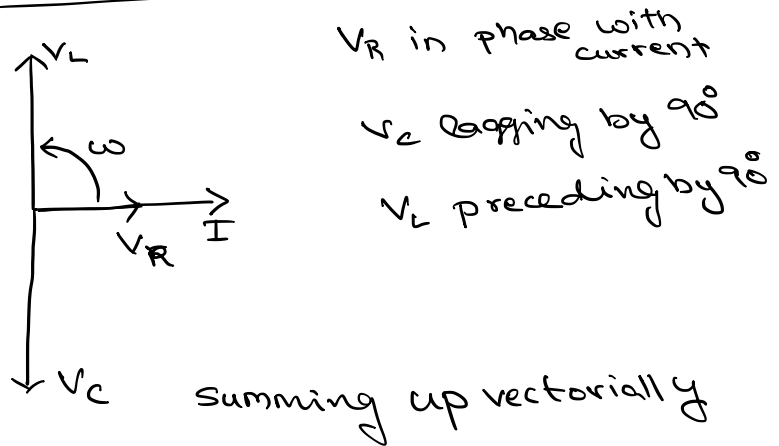 V_L
ω
V_R
I
V_C
V_R in phase with
current
V_C lagging by 90°
V_L preceding by 90°
summing up vectorially